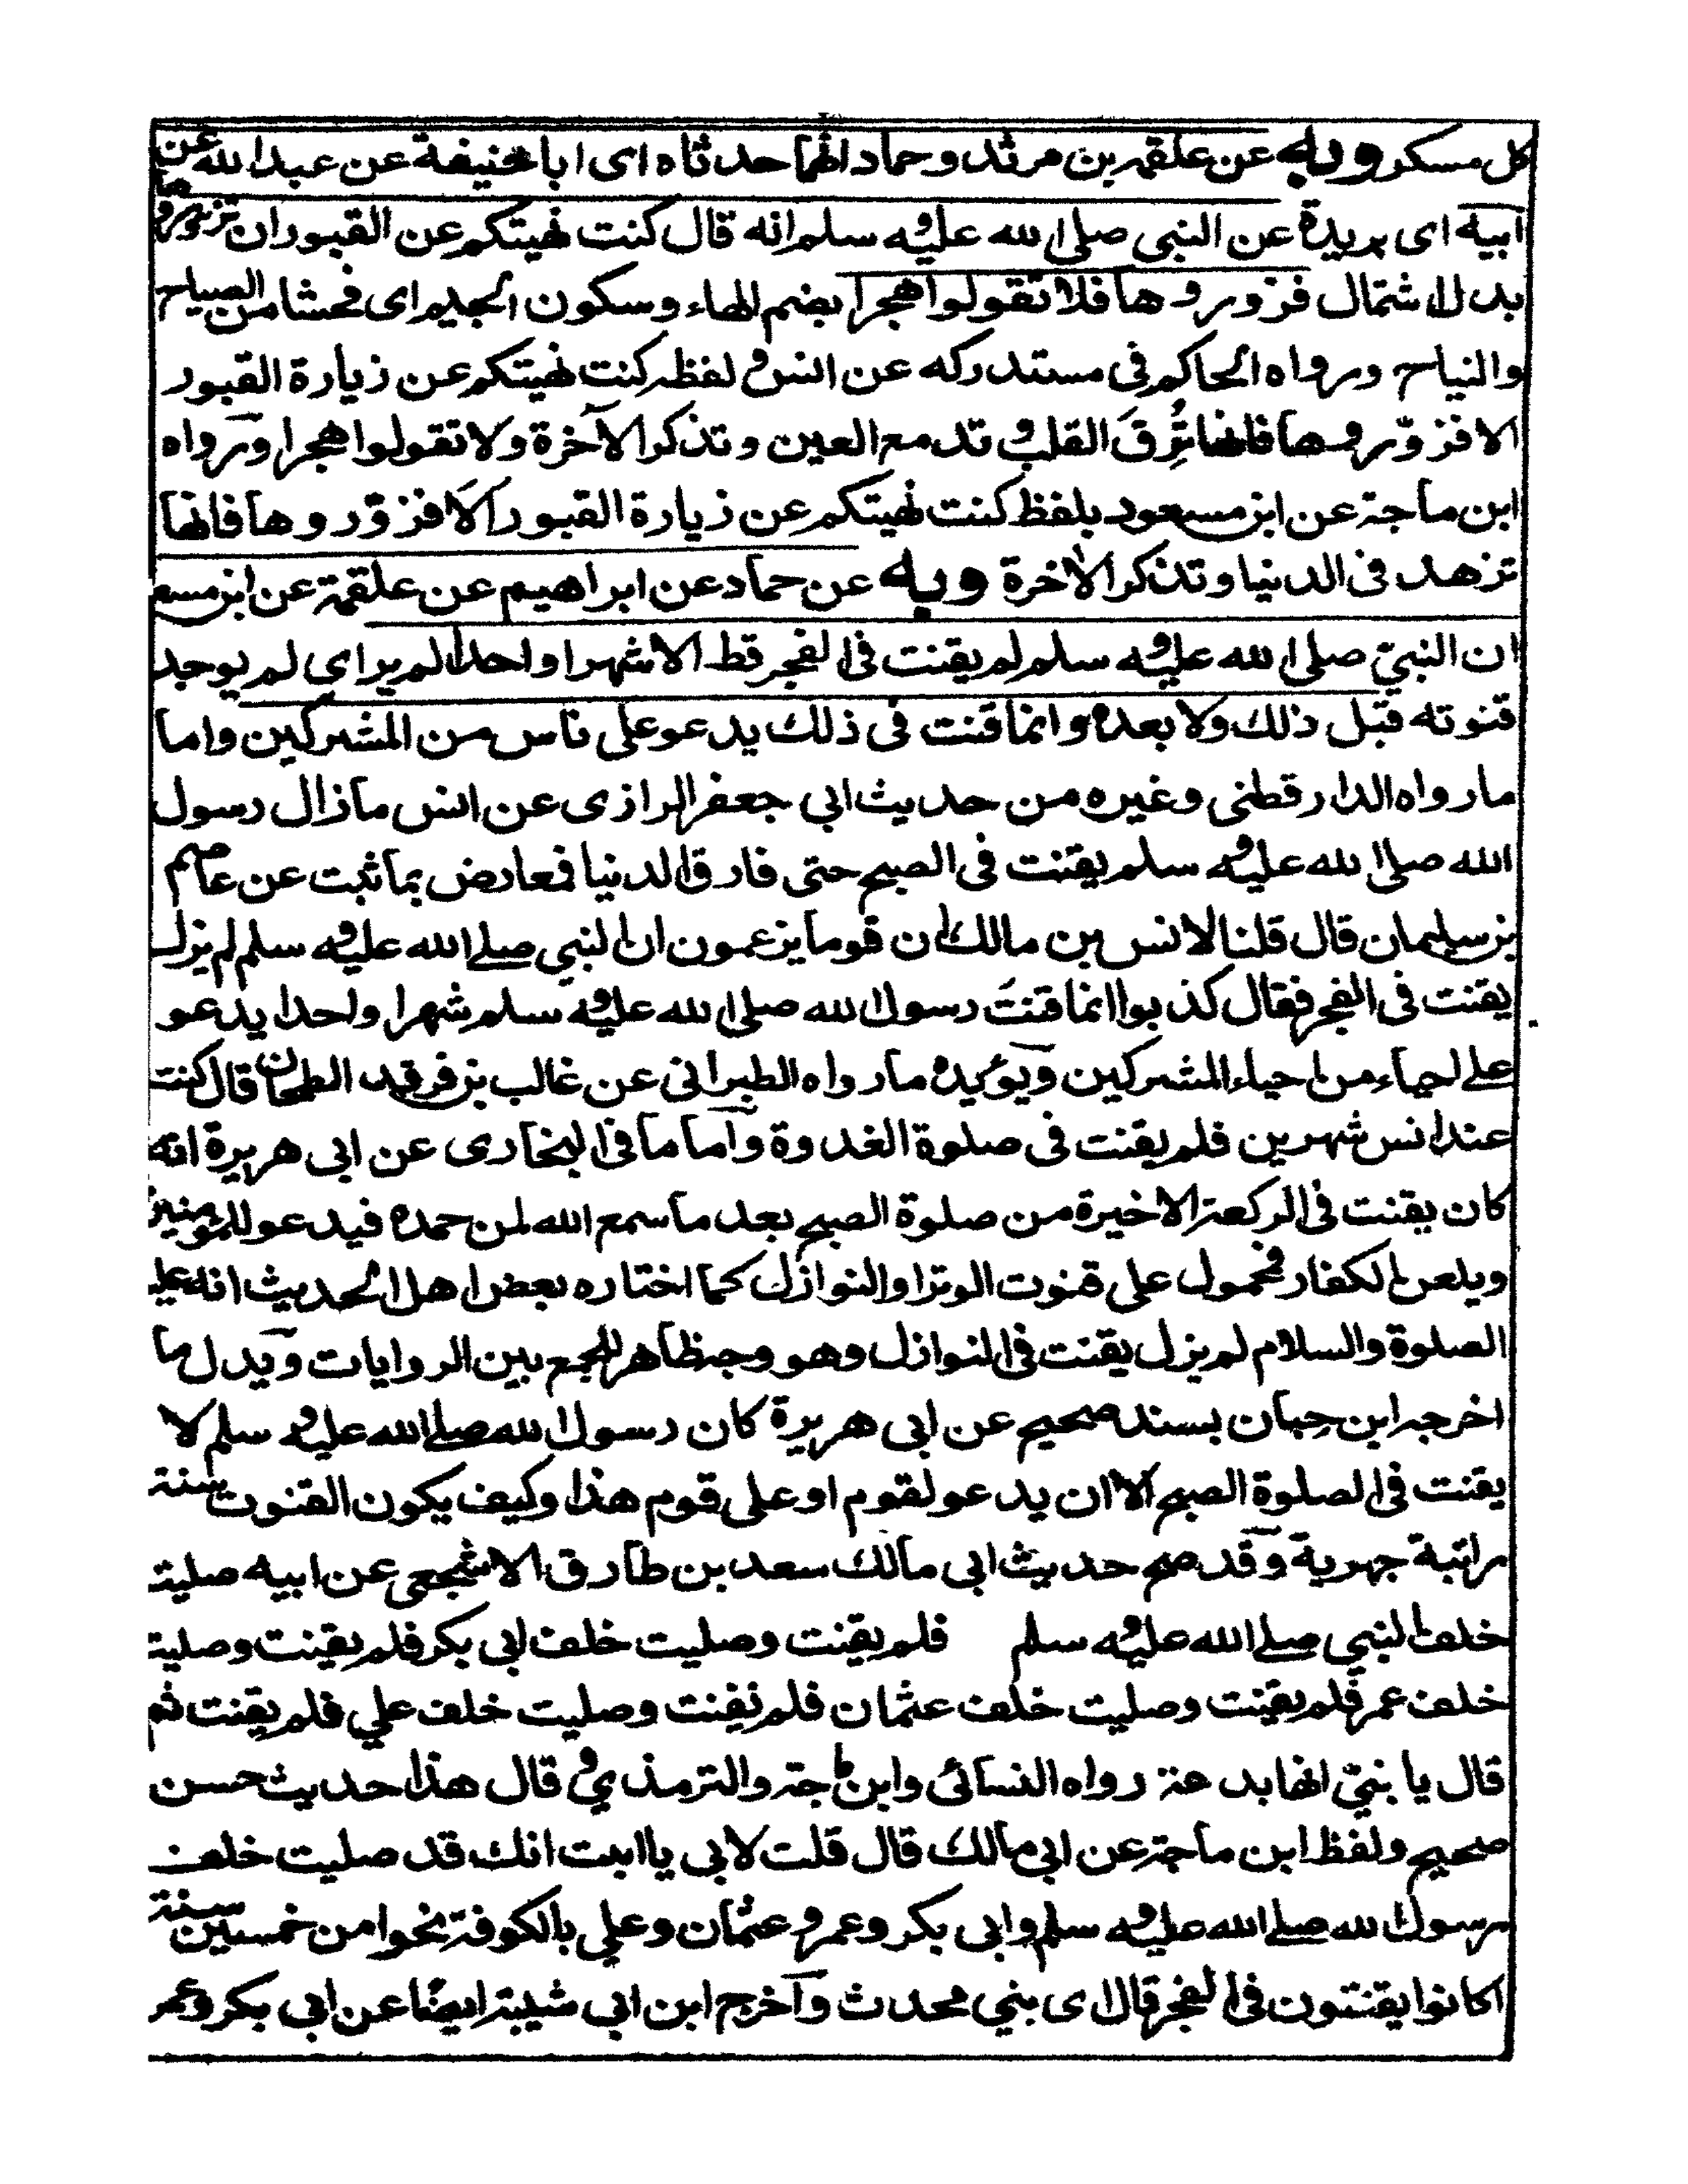 كل مسكر وبه عن علقمة بن مرثد وحماد انهما حدثاه اى ابا حنيفة عن عبد الله عن
ابيه اى بريدة عن النبى صلى الله عليه وسلم انه قال كنت نهيتكم عن القبور ان تزوروها
بدل اشتمال فزوروها فلا تقولوا هجرا بضم الهاء وسكون الجيم اى فحشا من الصياح
والنياح ورواه الحاكم فى مستدركه عن انس ولفظه كنت نهيتكم عن زيارة القبور
الا فزوّروها فانها تُرِقَّ القلب وتدمع العين وتذكر الآخرة ولا تقولوا هجرا ورواه
ابن ماجة عن ابن مسعود بلفظ كنت نهيتكم عن زيارة القبور الا فزوّروها فانها
تزهد فى الدنيا وتذكر الاخرة وبه عن حماد عن ابراهيم عن علقمة عن ابن مسع
ان النبيّ صلى الله عليه وسلم لم يقنت فى الفجر قط الا شهرا واحدا لم ير اى لم يوجد
قنوته قبل ذلك ولا بعده وانما قنت فى ذلك يدعو على ناس من المشركين واما
ما رواه الدارقطنى وغيره من حديث ابي جعفر الرازى عن انس ما زال رسول
الله صلى الله عليه وسلم يقنت فى الصبح حتى فارق الدنيا فمعارض بما ثبت عن عاصم
بن سليمان قال قلنا لانس بن مالك ان قوما يزعمون ان النبي صلى الله عليه وسلم لم يزل
يقنت فى الفجر فقال كذبوا انما قنتَ رسول الله صلى الله عليه وسلم شهرا واحدا يدعو
على احياء من احياء المشركين ويؤيده ما رواه الطبرانى عن غالب بن فرقد الطحان قال كنت
عند انس شهرين فلم يقنت فى صلوة الغدوة واما ما فى البخارى عن ابى هريرة انه
كان يقنت فى الركعة الاخيرة من صلوة الصبح بعد ما سمع الله لمن حمده فيدعو للمؤمنين
ويلعن الكفار فمحمول على قنوت الوتر او النوازل كما اختاره بعض اهل الحديث انه عليه
الصلوة والسلام لم يزل يقنت فى النوازل وهو وجه ظاهر للجمع بين الروايات ويدل ما
اخرجه ابن حبان بسند صحيح عن ابى هريرة كان رسول الله صلى الله عليه وسلم لا
يقنت فى الصلوة الصبح الا ان يدعو لقوم او على قوم هذا وكيف يكون القنوت سنة
راتبة جهرية وقد صح حديث ابى مالك سعد بن طارق الاشجعي عن ابيه صليت
خلف النبي صلى الله عليه وسلم فلم يقنت وصليت خلف ابى بكر فلم يقنت وصليت
خلف عمر فلم يقنت وصليت خلف عثمان فلم نقنت وصليت خلف علي فلم يقنت ثم
قال يا بنيّ انها بدعة رواه النسائى وابن ماجة والترمذي وقال هذا حديث حسن
صحيح ولفظ ابن ماجة عن ابى مالك قال قلت لابى يا ابت انك قد صليت خلف
رسول الله صلى الله عليه وسلم وابى بكر وعمر وعثمان وعلي بالكوفة نحوا من خمسين سنة
اكانوا يقنتون فى الفجر قال اى بني محدث واخرج ابن ابي شيبة ايضا عن ابى بكر وعمر